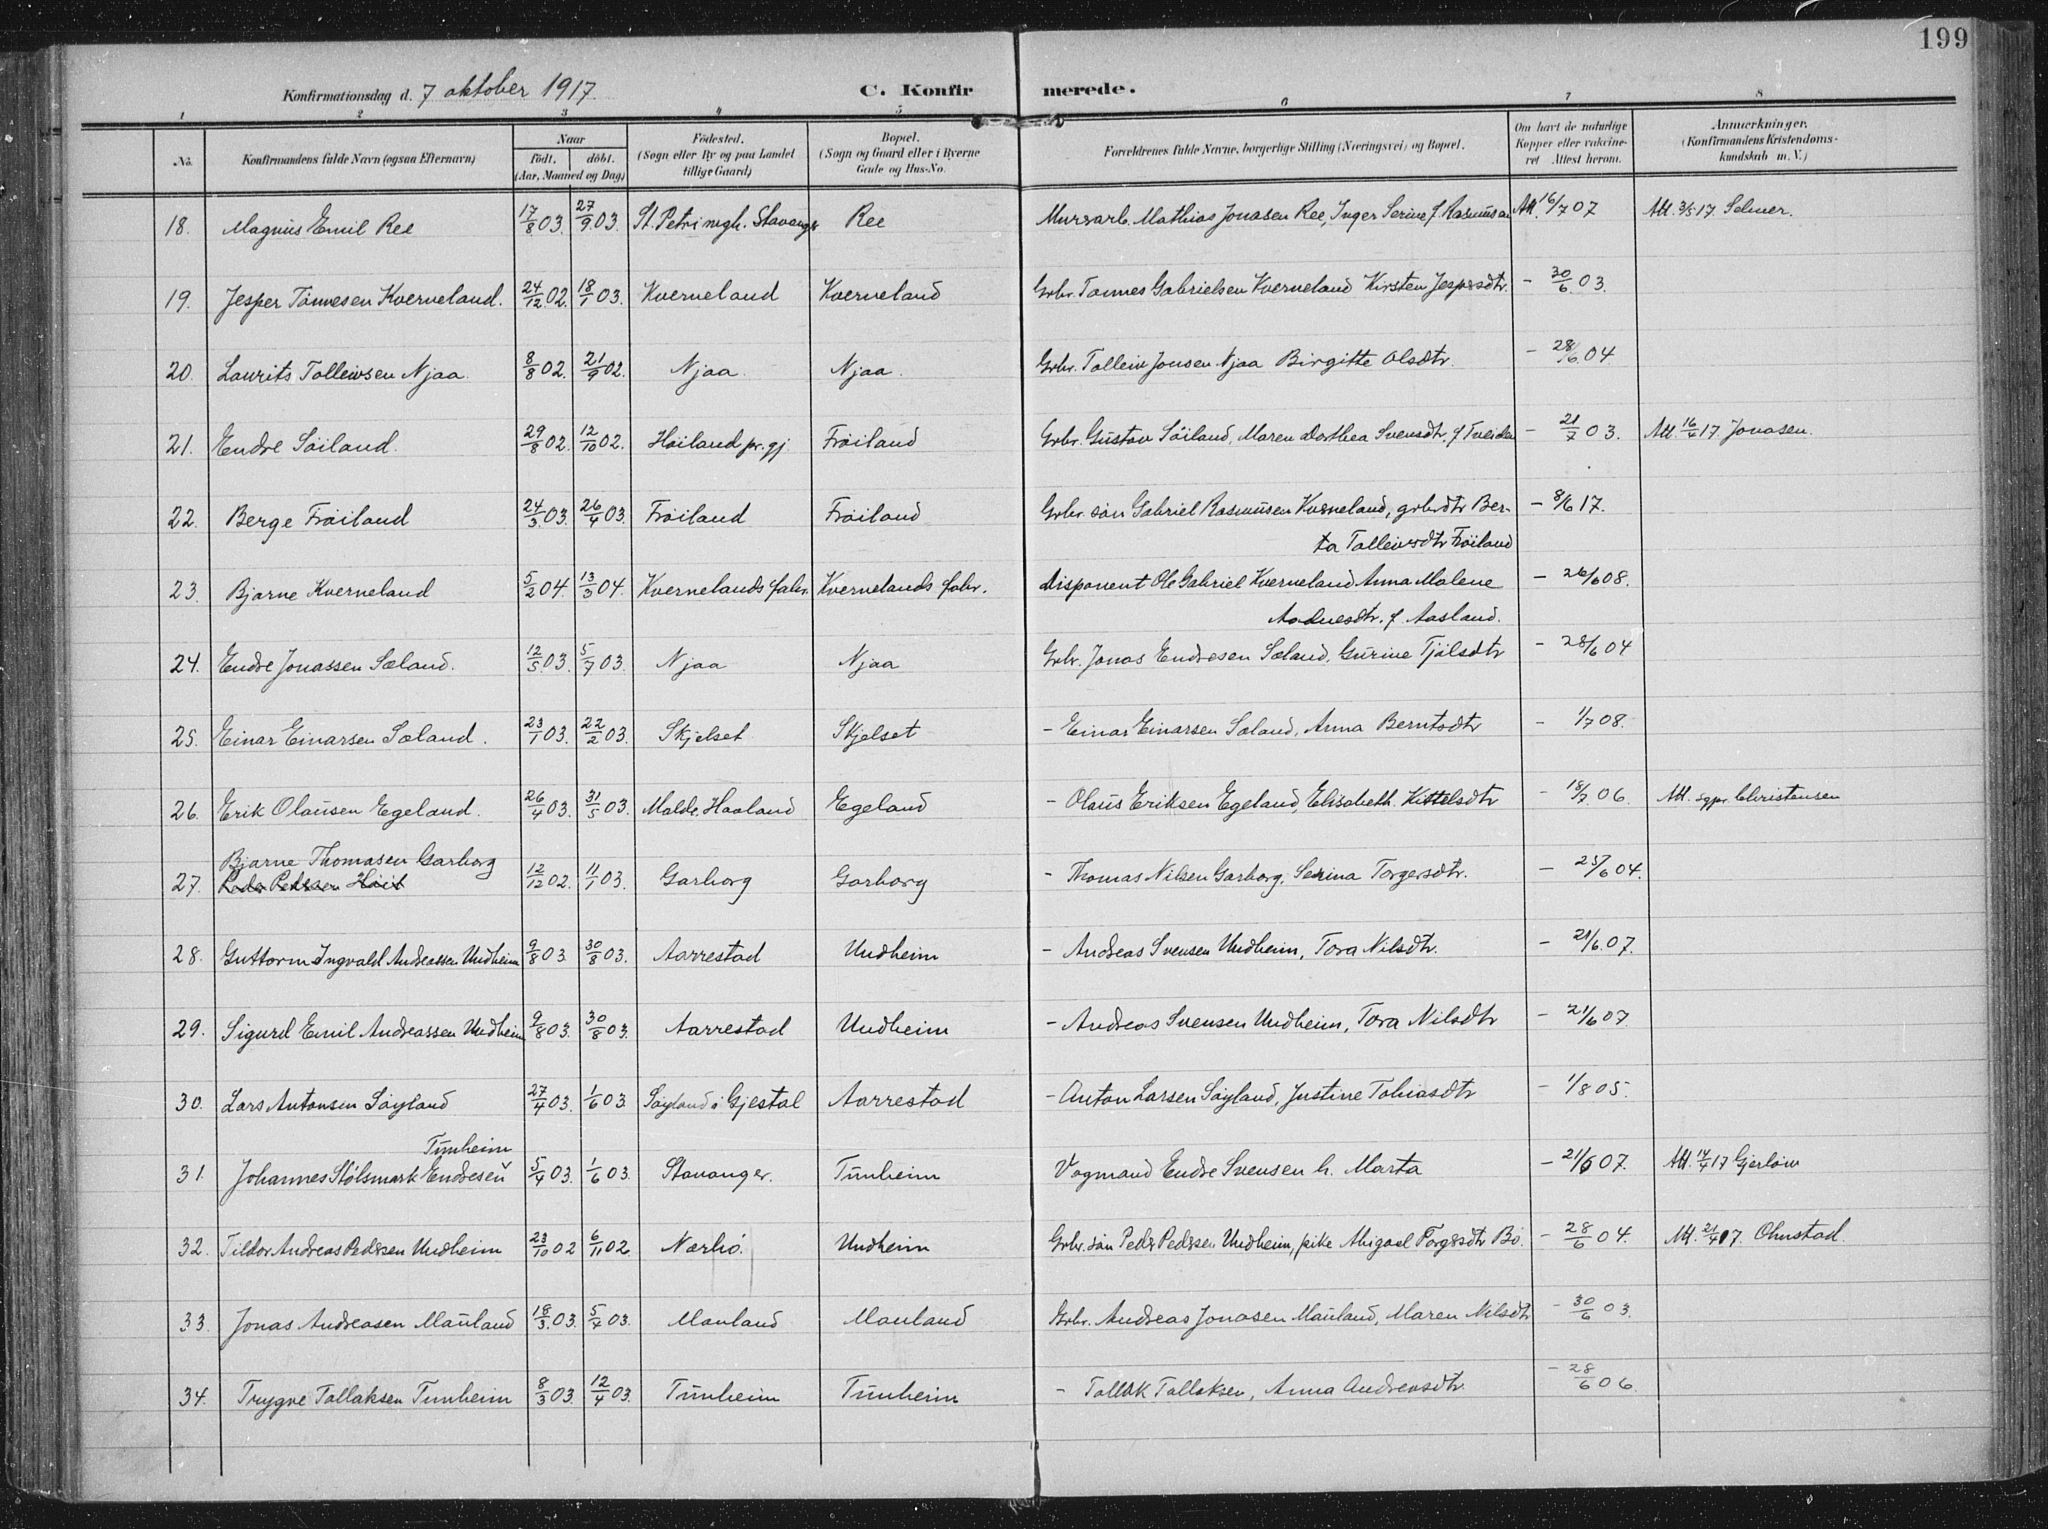 199
Konfirmationsdag d. 7 oktober 1917. C. Konfirmerede.
1 2 3 4 5 6 7 8
No. Konfirmandens fulde Navn (ogsaa Efternavn) Naar födt. döbt. (Aar, Maaned og Dag) Födested. (Sogn eller By og paa Landet tillige Gaard) Bopæl. (Sogn og Gaard eller i Byerne Gade og Hus-No. Forældrenes fulde Navne, borgerlige Stilling (Næringsvei) og Bopæl. Om havt de naturlige Kopper eller vakcineret Attest herom. Anmærkninger. (Konfirmandens Kristendomskundskab m. V.)
18. Magnus Emil Ree 17/8 03. 27/9 03. St. Petri mgh. Stavanger Ree Murarb. Mathias Jonasen Ree, Inger Serine f. Rasmussen Att. 16/7 07 Att. 3/5 17. Selmer.
19. Jesper Tönnesen Kverneland. 24/12 02. 18/1 03. Kverneland Kverneland Grbr. Tönnes Gabrielsen Kverneland Kirsten Jespersdtr. - 30/6 03.
20. Laurits Tolleivsen Njaa. 8/8 02. 21/9 02. Njaa. Njaa. Grbr. Tolleiv Jonsen Njaa Birgitte Olsdtr. - 28/6 04
21. Endre Söiland. 29/8 02. 12/10 02. Höiland pr.gj. Fröiland Grbr. Gustav Söiland, Maren Dorthea Svensdtr. f Tveiden - 21/7 03. Att. 16/4 17. Jonasen.
22. Berge Fröiland 24/3 03. 26/4 03. Fröiland Fröiland Grbr. sön Gabriel Rasmusen Kverneland, grbrdtr Ber- - 8/6 17.
ta Tolleivsdtr Fröiland
23. Bjarne Kverneland 5/2 04. 13/3 04. Kvernelands fabr. Kvernelands fabr. Disponent Ole Gabriel Kverneland Anna Malene - 26/6 08.
Aadnesdtr. f Aasland.
24. Endre Jonassen Sæland. 12/5 03. 5/7 03. Njaa Njaa Grbr. Jonas Endresen Sæland, Gurine Tjölsdtr - 28/6 04
25. Einar Einarsen Sæland. 23/1 03. 22/2 03. Skjelset Skjelset - Einar Einarsen Sæland, Anna Berntsdtr - 1/7 08.
26. Erik Olausen Egeland. 26/4 03. 31/5 03. Malde, Haaland Egeland - Olaus Eriksen Egeland, Elisabeth Kittelsdtr - 18/7 06. Att. sgpr. Christensen
Bjarne Thomasen Garborg
27. Peder Pedersen Höie 12/12 02. 11/1 03. Garborg Garborg - Thomas Nilsen Garborg, Serina Torgersdtr. - 25/6 04.
28. Guttorm Ingvald Andreassen Undheim 9/8 03. 30/8 03. Aarrestad Undheim - Andreas Svensen Undheim, Tora Nilsdtr. - 21/6 07.
29. Sigurd Emil Andreassen Undheim 9/8 03. 30/8 03. Aarrestad Undheim - Andreas Svensen Undheim, Tora Nilsdtr - 21/6 07.
30. Lars Antonsen Söyland 27/4 03. 1/6 03. Söyland i Gjestal Aarrestad - Anton Larsen Söyland, Justine Tobiasdtr - 1/8 05.
Tunheim
31. Johannes Stölsmark Endresen 5/4 03. 1/6 03. Stavanger. Tunheim Vogmand Endre Svensen h. Marta - 21/6 07. Att. 14/4 17 Gjerlöw
32. Tildor Andreas Pedersen Undheim 23/10 02 6/11 02. Nærbö. Undheim Grbr. sön Peder Pedersen Undheim, pike Abigael Torgersdtr Bö. - 28/6 04. Att. 21/4 17. Ohnstad.
33. Jonas Andreasen Mauland 18/3 03. 5/4 03. Mauland Mauland Grbr. Andreas Jonasen Mauland, Maren Nilsdtr - 30/6 03.
34. Trygve Tollaksen Tunheim 8/3 03. 12/4 03. Tunheim Tunheim - Tollak Tollaksen, Anna Andreasdtr. - 28/6 06.